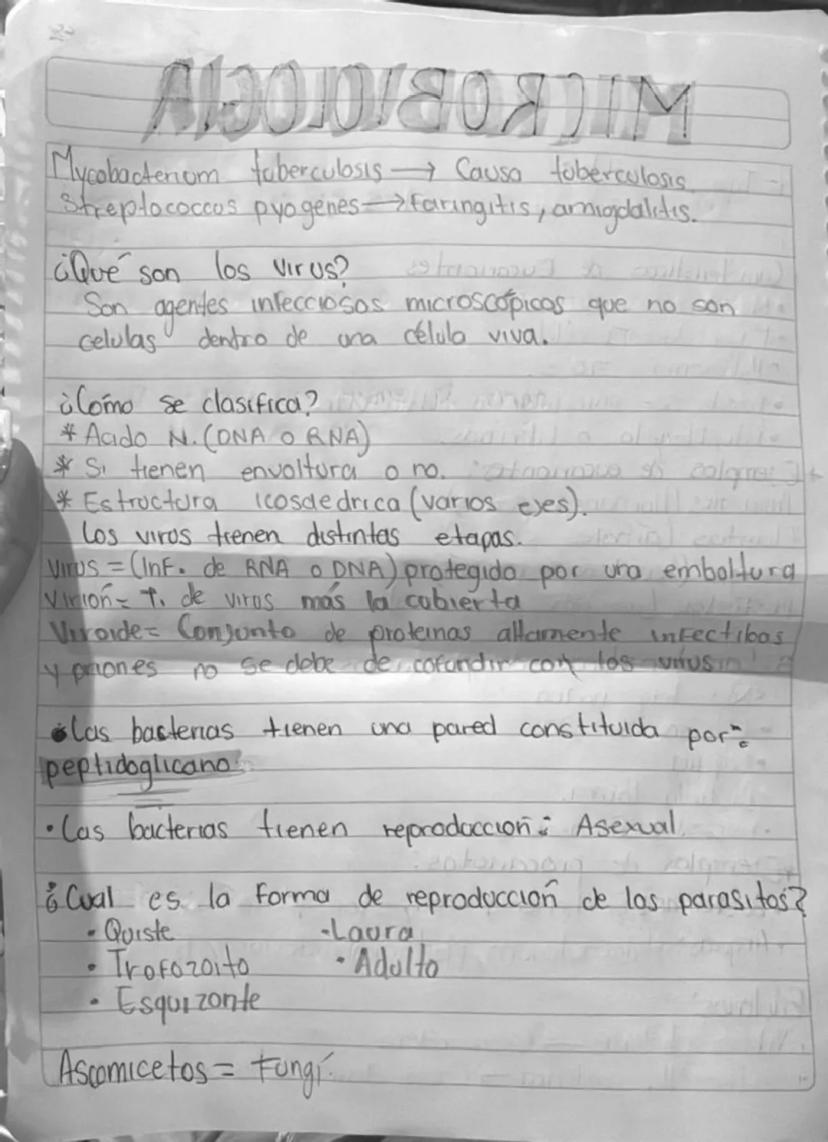 MICROBIOLOGIA
Mycobacterium tuberculosis → Causa tuberculosis
Streptococcos pyogenes → Faringitis, amigdalitis.
¿Qué son los virus?
Son agentes infecciosos microscópicos que no son
celulas dentro de una célula viva.
¿Como se clasifica?
* Acido N. (DNA O RNA)
* Si tienen envoltura o no.
* Estructura icosaedrica (varios ejes).
Los virus tienen distintas etapas.
Virus = (Inf. de RNA o DNA) protegido por una emboltura
Virión = T. de virus más la cubierta
Viroide = Conjunto de proteinas altamente infectibas
y priones no se debe de cofundir con los virus
• Las bacterias tienen una pared constituida por:
peptidoglicano
• Las bacterias tienen reproducción: Asexual
¿Cual es la forma de reproducción de los parasitos?
• Quiste - Laura
• Trofozoito • Adulto
• Esquizonte
Ascomicetos = Fungi.